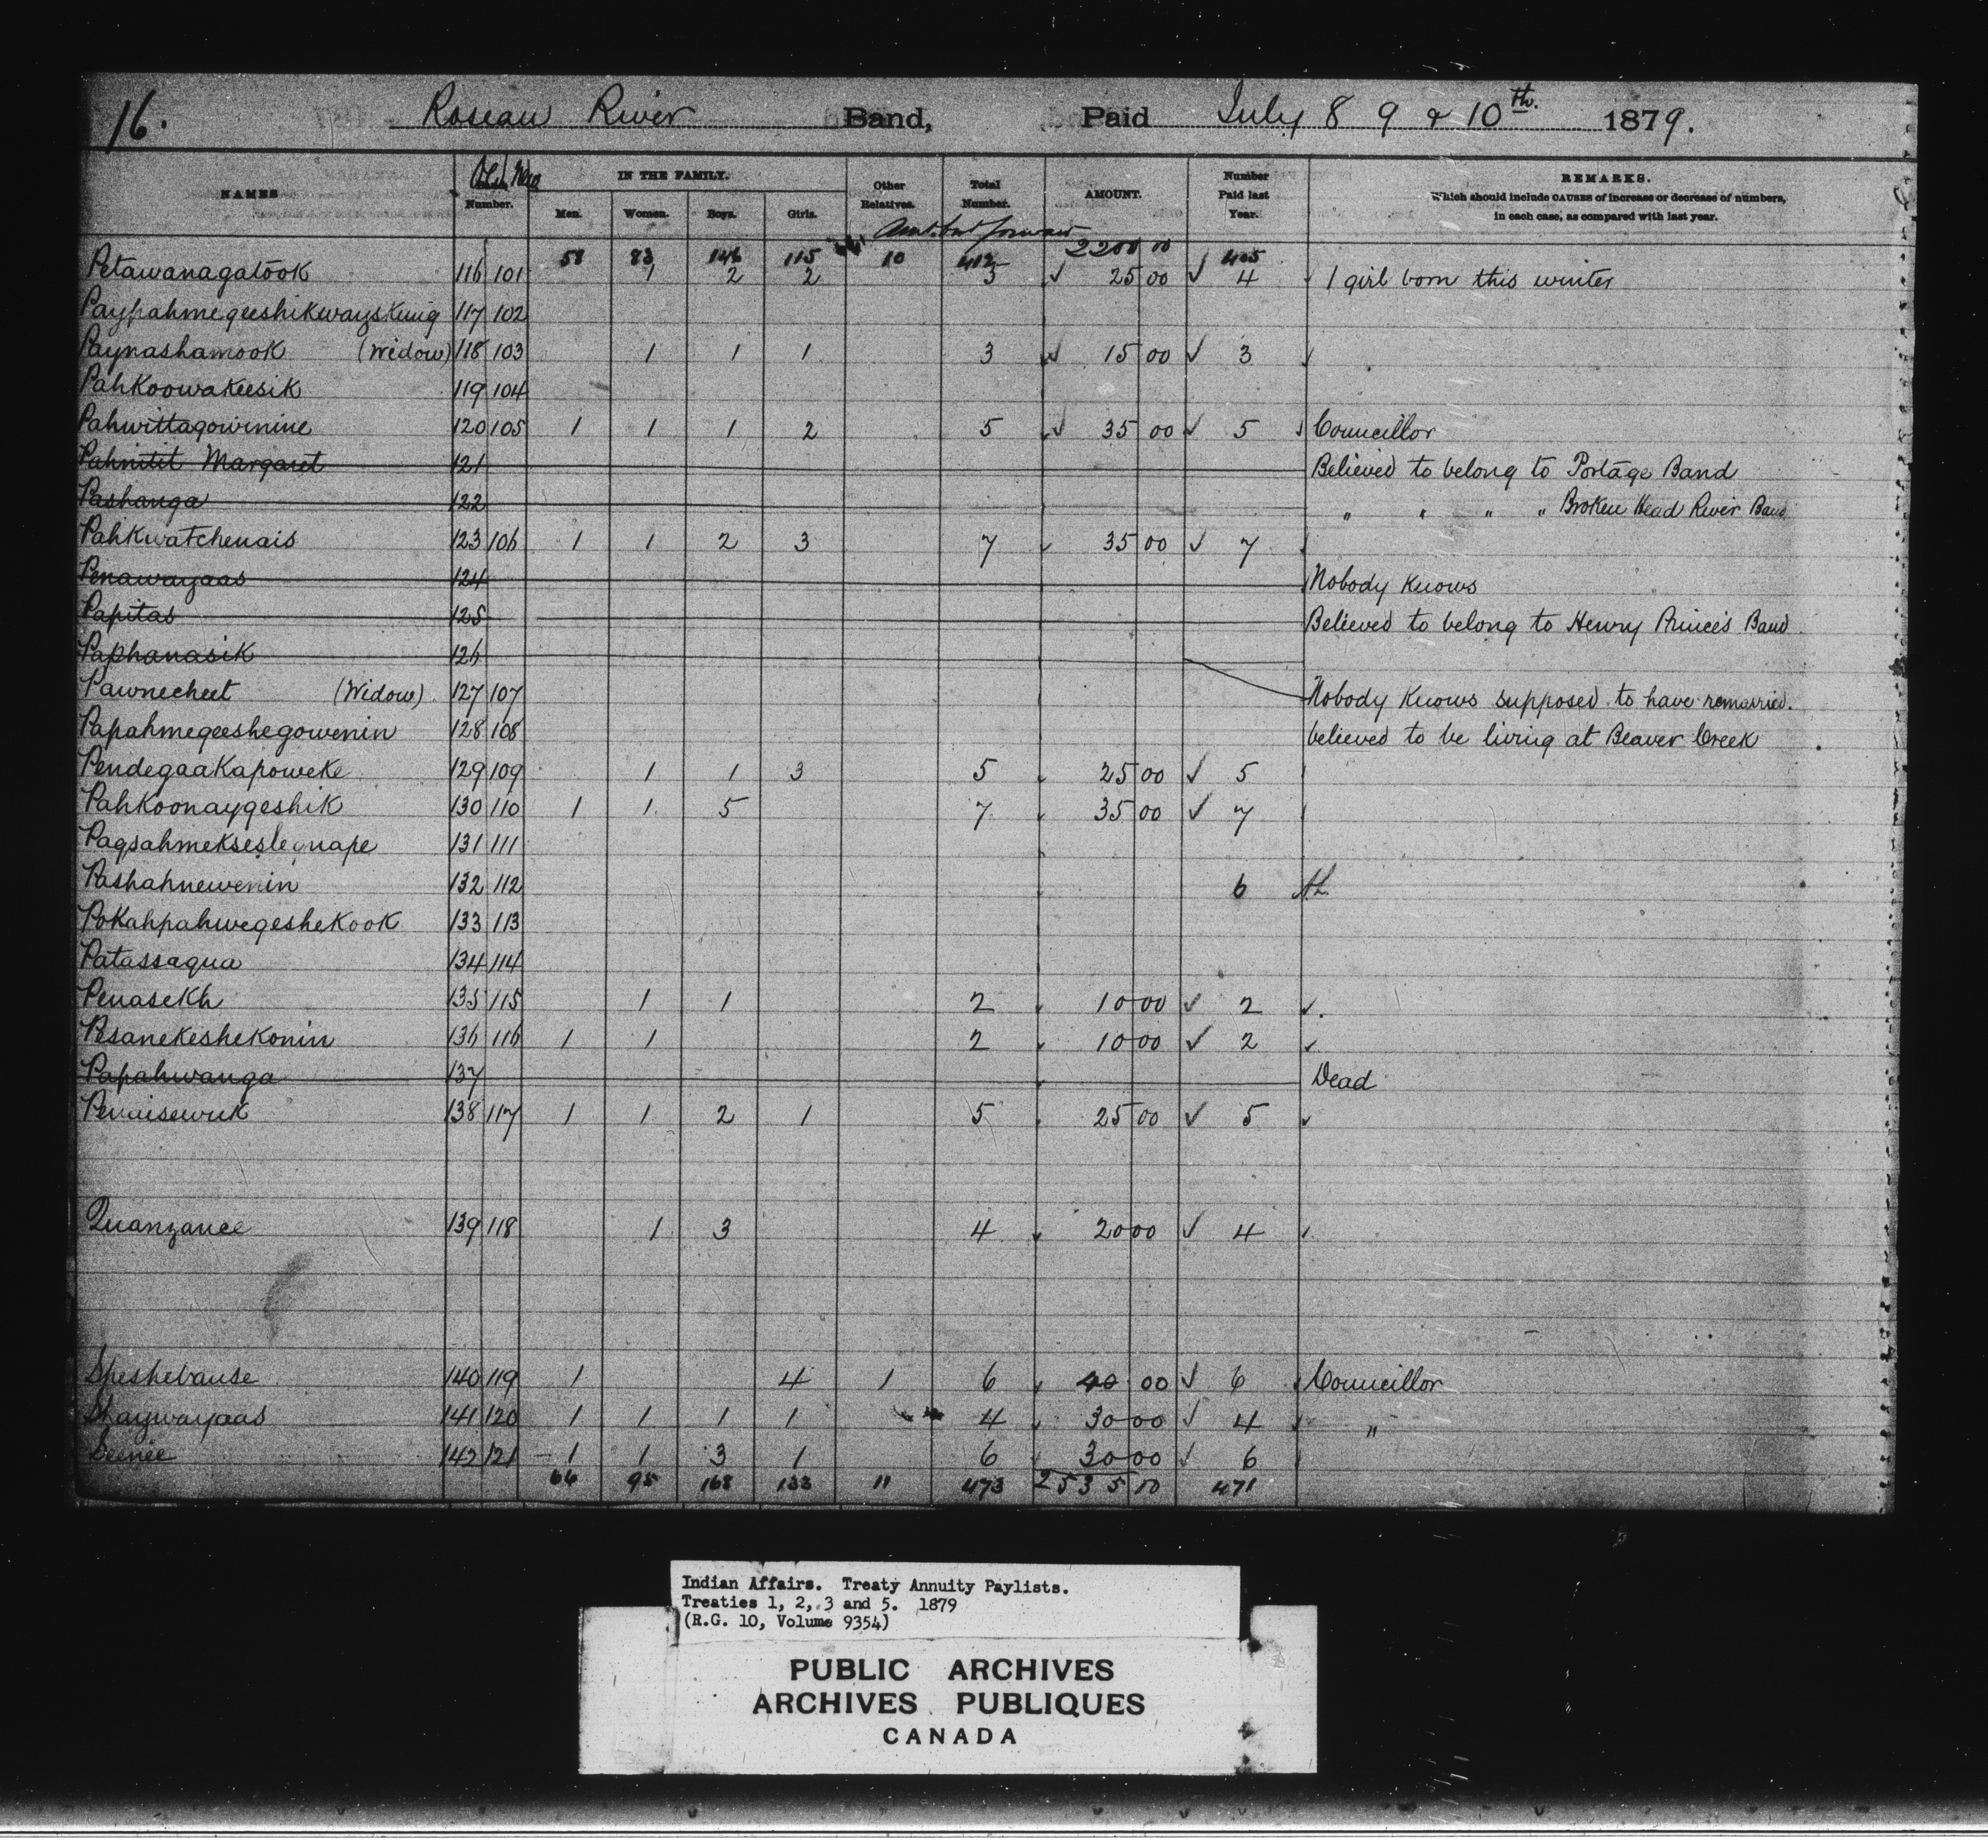 16. Roseau River Band, Paid July 8 9 & 10th. 1879.
NAMES Old New Number. IN THE FAMILY. Men. Women. Boys. Girls. Other Relatives. Total Number. AMOUNT. Number Paid last Year. REMARKS.
Which should include CAUSES of increase or decrease of numbers,
in each case, as compared with last year.
Amt. bt forward
58 83 146 115 10 412 2200 00 405
Petawanagatook 116 101 1 2 2 5 25 00 4 1 girl born this winter
Paypahmegeeshikwayskung 117 102
Paynashamook (Widow) 118 103 1 1 1 3 15 00 3
Pahkoowakeesik 119 104
Pahwittagowinine 120 105 1 1 1 2 5 35 00 5 Councillor
Pahnitit Margaret 121 Believed to belong to Portage Band
Pashanga 122 " " " " Broken Head River Band
Pahkwatchenais 123 106 1 1 2 3 7 35 00 7
Penawayaas 124 Nobody Knows
Papitas 125 Believed to belong to Henry Prince's Band
Paphanasik 126
Pawnecheet (Widow) 127 107 Nobody Knows supposed to have remarried.
Papahmegeeshegowenin 128 108 believed to be living at Beaver Creek
Pendegaakapoweke 129 109 1 1 3 5 25 00 5
Pahkoonaygeshik 130 110 1 1 5 7 35 00 7
131 111
Pashahnewenin 132 112 6
Pokahpahwegeshekook 133 113
Patassaqua 134 114
Penasekh 135 115 1 1 2 10 00 2
Pesanekeshekonin 136 116 1 1 2 10 00 2
Papahwanga 137 Dead
Penaisewuk 138 117 1 1 2 1 5 25 00 5
Quanzance 139 118 1 3 4 20 00 4
Sheshebause 140 119 1 4 1 6 40 00 6 Councillor
Shaywayaas 141 120 1 1 1 1 4 30 00 4 "
Seenee 142 121 1 1 3 1 6 30 00 6
66 95 168 133 11 473 2535 00 471
Indian Affairs. Treaty Annuity Paylists.
Treaties 1, 2, 3 and 5. 1879
(R.G. 10, Volume 9354)
PUBLIC ARCHIVES
ARCHIVES PUBLIQUES
CANADA